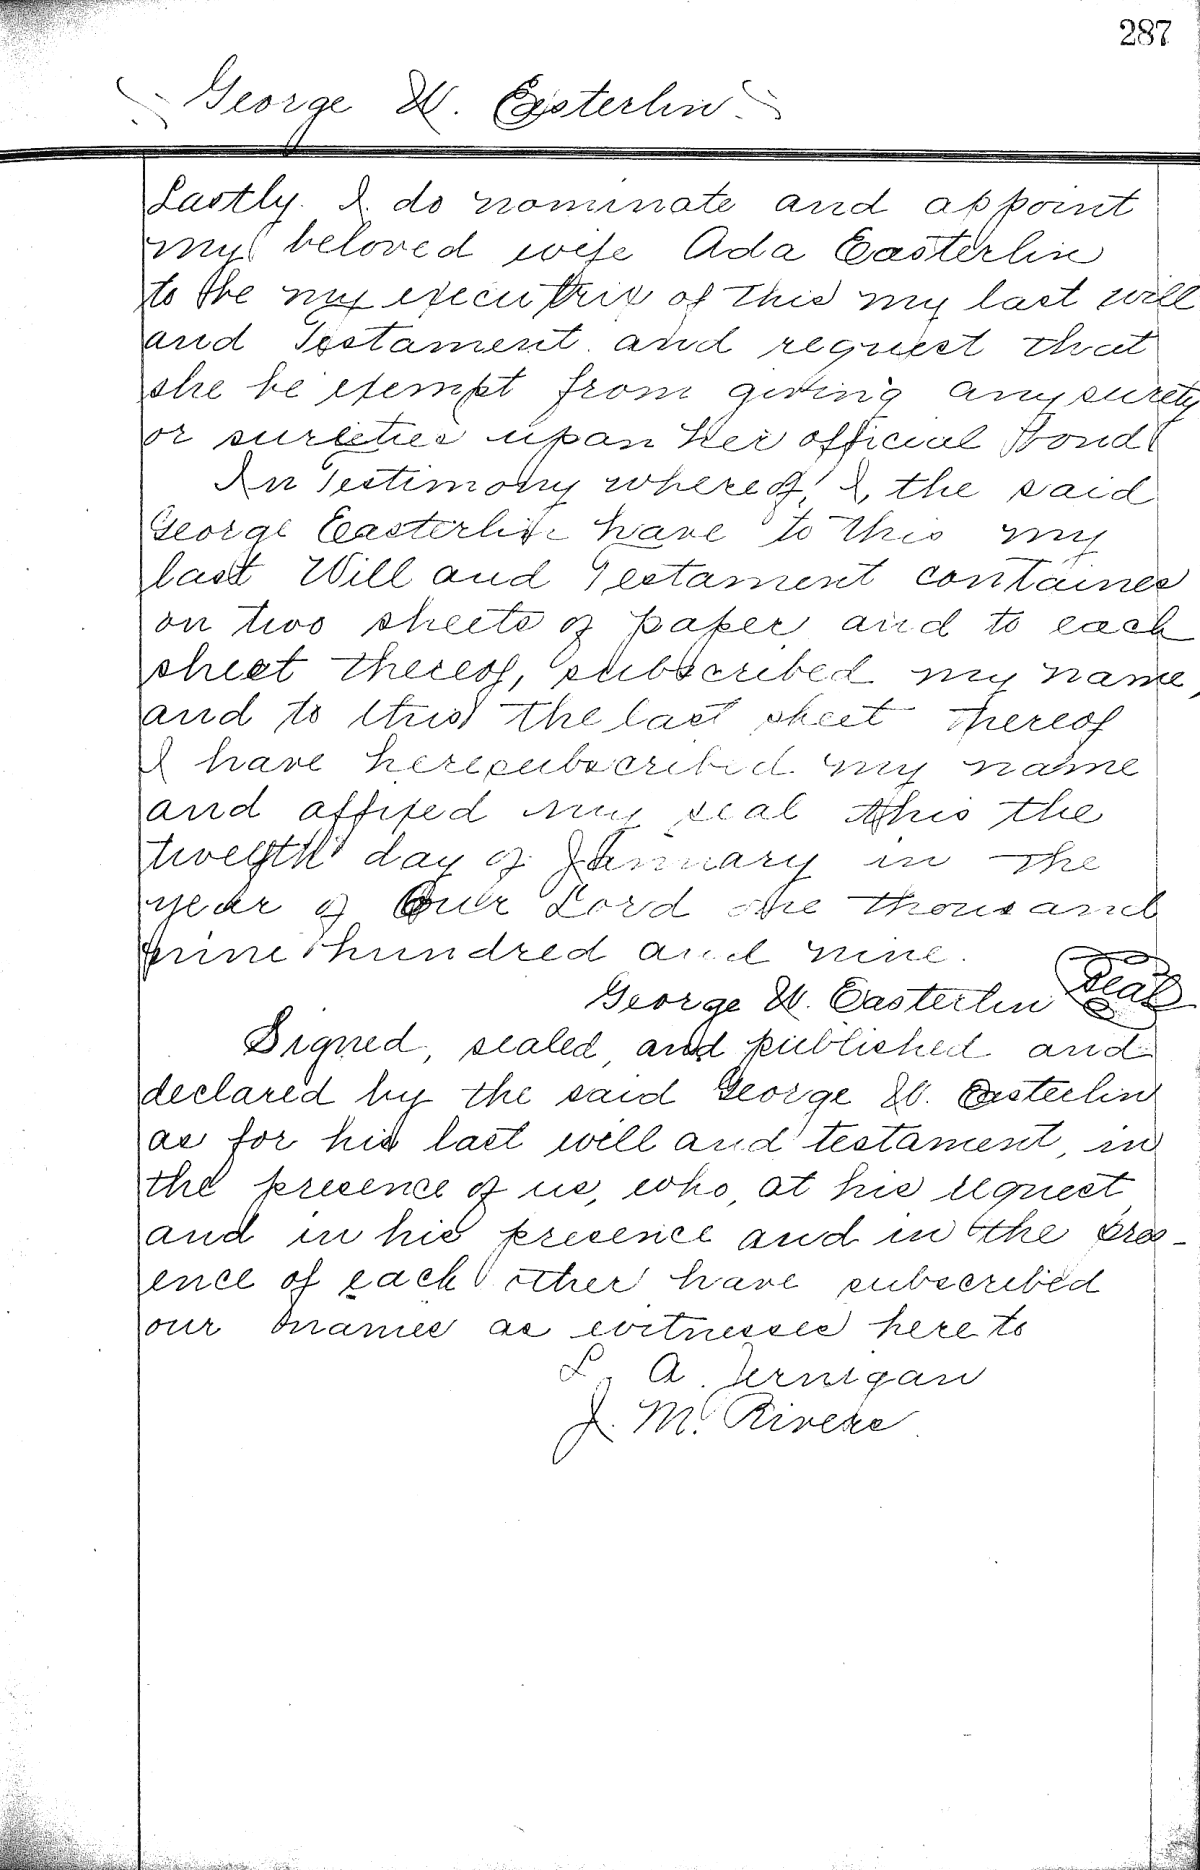 287
George W. Easterlin
Lastly. I do nominate and appoint
my beloved wife Ada Easterlin
to be my executrix of this my last will
and Testament. and request that
she be exempt from giving any surety
or sureties upon her official bond
In Testimony whereof, I, the said
George Easterlin have to this my
last Will and Testament containes
on two sheets of paper and to each
sheet thereof, subscribed my name,
and to this the last sheet thereof
I have here subscribed my name
and affixed my seal this the
twelfth day of January in the
year of Our Lord one thousand
nine hundred and nine.
George W. Easterlin Seal
Signed, sealed, and published and
declared by the said George W. Easterlin
as for his last will and testament, in
the presence of us, who, at his request,
and in his presence and in the pres-
ence of each other have subscribed
our names as witnesses here to
L. A. Jernigan
J. M. Rivers